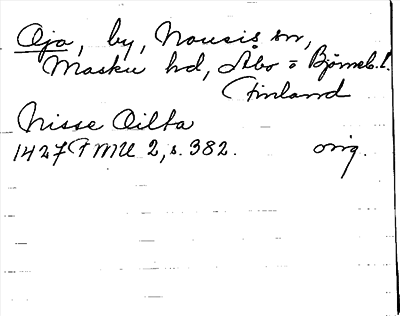 Oja, by, Nousis sn,
Masku hd, Åbo = Björneb. l.
Finland
Nisse Oilta
1427 FMU 2, s. 382. orig.